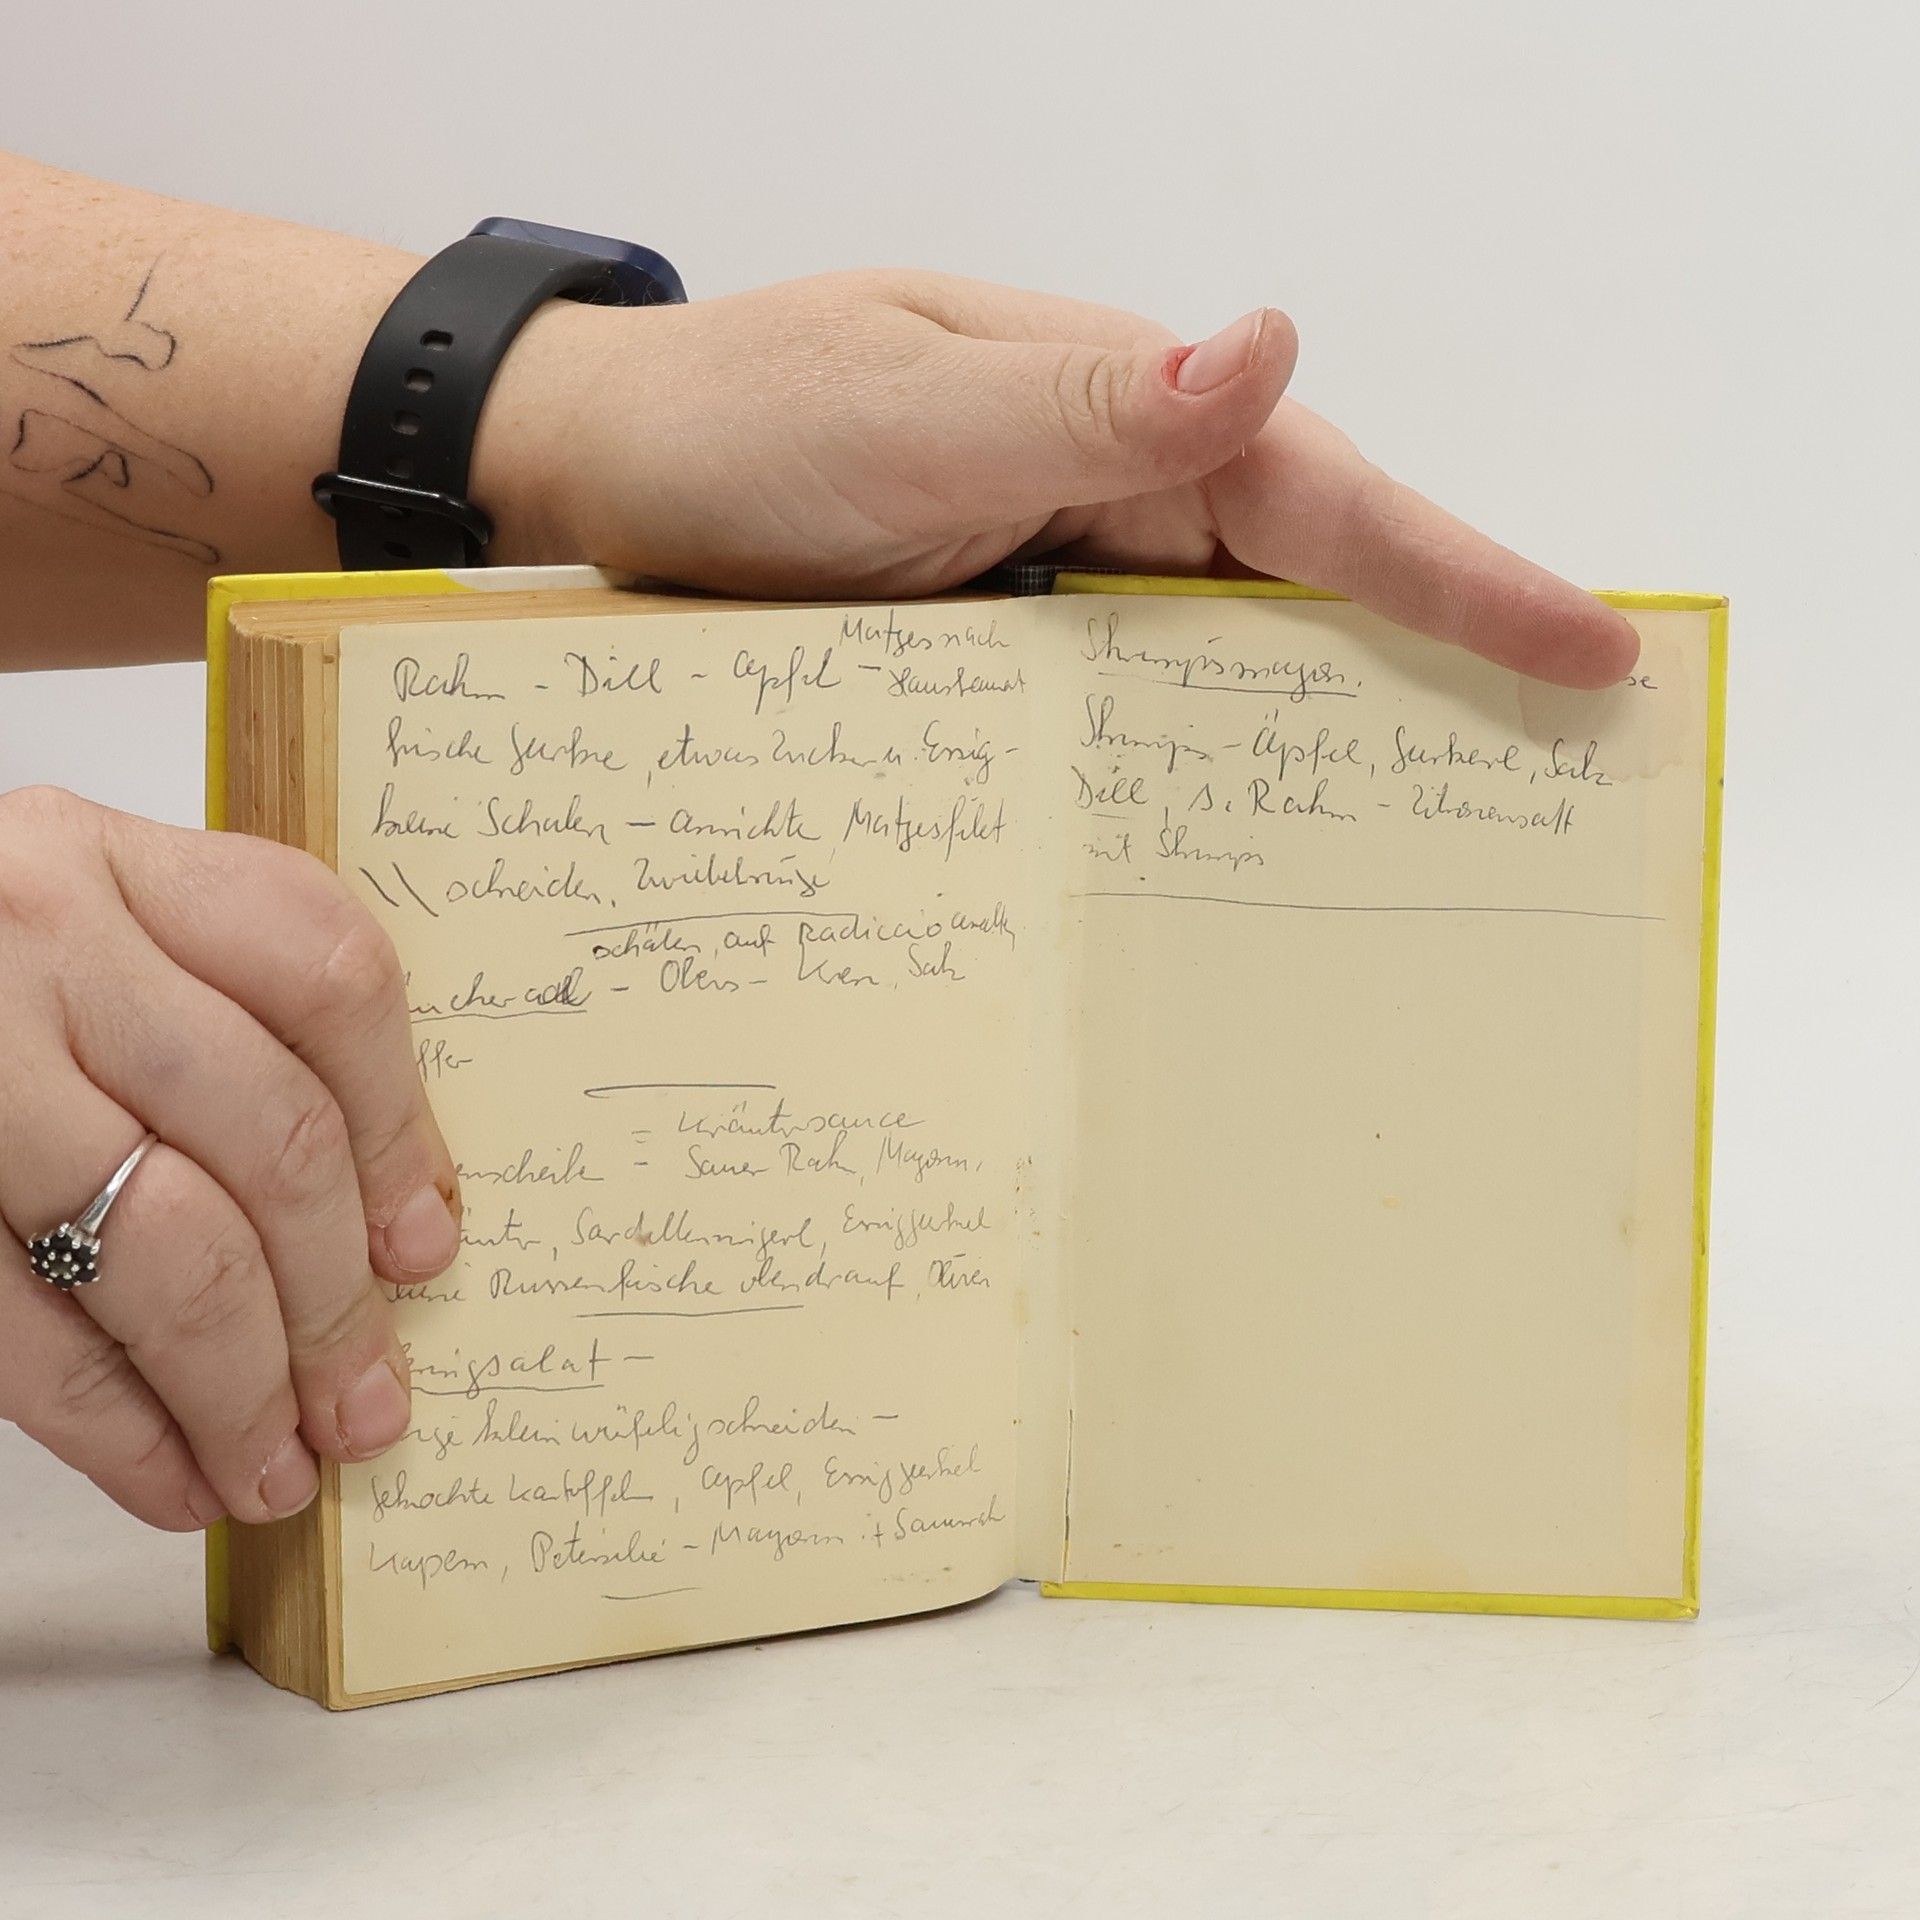 Matjes nach
Rahm - Dill - Apfel - Hausfrauenart
frische Gurke, etwas Zucker u. Essig -
kleine Schalen - anrichte, Matjesfilet
\\ schneiden, Zwiebelringe
schälen, auf Radiccio
äucheraal - Obers - Kren, Salz
ffer
= Kräutersauce
enscheibe - Sauer Rahm, Mayonn.
äuter, Sardellenringerl, Essiggurkerl
kleine Russenfische obendrauf, Oliven
eringsalat -
inge klein würfelig schneiden -
gekochte Kartoffeln, Apfel, Essiggurkerl
Kapern, Petersilie - Mayonn. + Sauerrah
Shrimpsmayon.
se
Shrimps - Äpfel, Gurkerl, Salz
Dill, s. Rahm - Zitronensaft
mit Shrimps